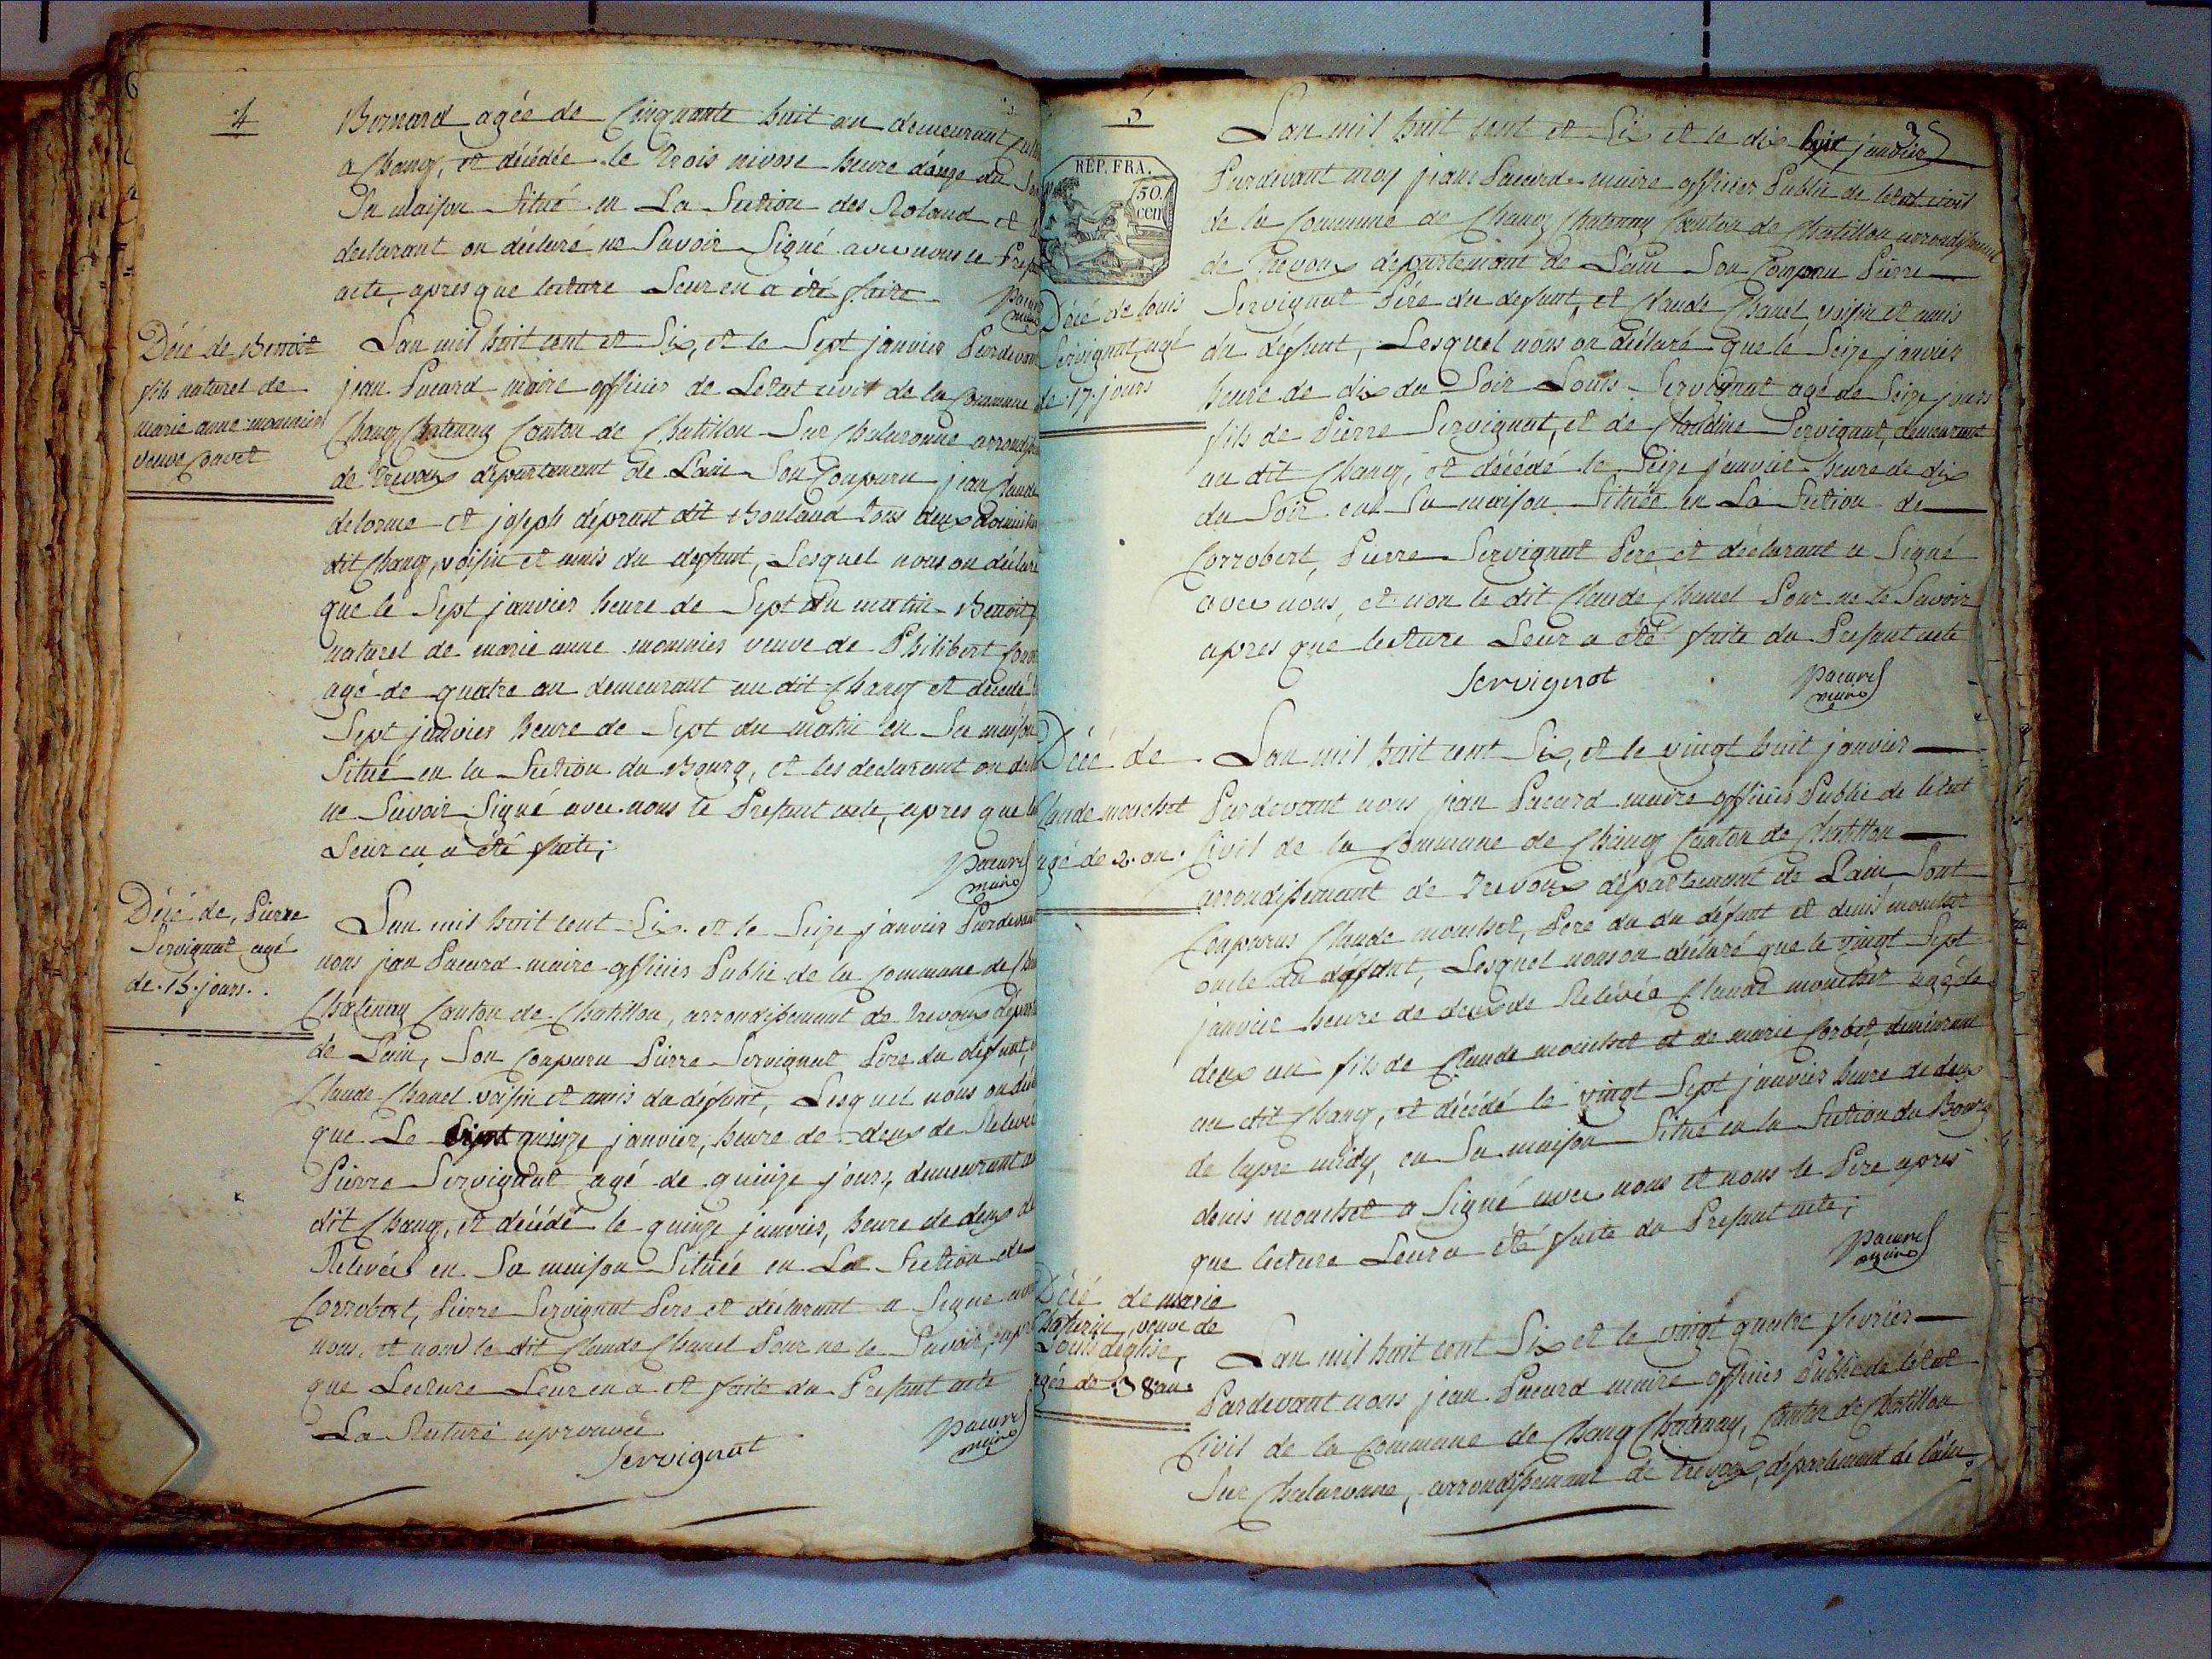 4
Bernard agée de Cinquante huit an demeurant
a Chanoz, et décédée le trois nivose heure donze du
Sa maison Situé en La Section des Roland et
declarant on déclaré ne Savoir Signé avec nous le
acte, apres que lecture Leur en a été faite
pacard
maire
Décé de Benoit
fils naturel de
marie anne monnier
veuve Couvet
Lan mil huit cent et Six, et le Sept janvier Pardevant
jean Pacard maire officier de Letat civil de la Commune
Chanoz Chatenay Canton de Chatillon Sur Chalaronne
de Trevoux département de Lain Son Conparu jean Claude
delorme et joseph déprast dit Bouland tous deux
dit Chanoz, voisin et amis du defunt, Lesquel nous on déclaré
que le Sept janvier heure de Sept du matin Benoit
naturel de marie anne monnier veuve de Philibert
agé de quatre an demeurant au dit Chanoz et décédé
Sept janvier heure de Sept du matin en Sa maison
Situé en la Section du Bourg, et les declarant on
ne Savoir Signé avec nous le Presant acte, apres que
Leur en a été faite;
pacard
maire
Décé de, Pierre
Servignat agé
de .15. jours.
Lan mil huit cent Six et le Seize janvier Pardevant
nous jean Pacard maire officier Public de la Commune de
Chatenay Canton de Chatillon, arrondissement de Trevoux
de Lain, Son Conparu Pierre Servignat Pere du defunt
Claude Chanel voisin et amis du défunt, Lesquel nous on
que Le quinze janvier, heure de deux de Relevée
Pierre Servignat agé de quinze jours, demeurant
dit Chanoz, et décédé le quinze janvier, heure de deux de
Relevée en Sa maison Située en La Section de
Corrobert, Pierre Servignat Pere et déclarant a Signé
nous, et non le dit Claude Chanel Pour ne le Savoir,
que Lecture Leur en a été faite du Presant acte
La Rature aprouvée
Servignat
pacard
maire
5
3
REP. FRA.
50.
cen
Lan mil huit cent et Six et le dix huit janvier
Pardevant moy jean Pacard maire officier Public de letat civil
de la Commune de Chanoz Chatenay Canton de Chatillon arrondissement
de Trevoux departement de Lain Son Conparu Pierre
Servignat Pére du defunt, et Claude Chanel voisin et amis
du défunt, Lesquel nous on déclaré que le Seize janvier
heure de dix du Soir Louis Servignat agé de Seize jours
fils de Pierre Servignat, et de Claudine Servigant, demeurant
au dit Chanoz, et décédé le Seize janvier heure de dix
du Soir en Sa maison Située en La Section de
Corrobert, Pierre Servignat Pere et déclarant a Signé
avec nous, et non le dit Claude Chanel Pour ne le Savoir
apres que lecture Leur a été faite du Presant acte
Servignat
pacard
maire
Décé de louis
Servignat agé
de .17. jours
Décé de
Claude mouchet
agé de 2. an.
Lan mil huit cent Six, et le vingt huit janvier
Pardevant nous jean Pacard maire officier Public de létat
Civil de la Commune de Chanoz Canton de Chatillon
arrondissement de Trevoux département de Lain Sont
Conparus Claude mouchet, Pere du du défunt et denis mouchet
oncle du déffunt, Lesquel nous on déclaré que le vingt Sept
janvier heure de deux de Relévée Claude mouchet agé de
deux an fils de Claude mouchet et de marie Corbet, demeurant
au dit Chanoz, et décédé le vingt Sept janvier heure de deux
de lapre midy, en Sa maison Situé en la Section du Bourg
denis mouchet a Signé avec nous et nous le Pere apres
que lecture Leur a été faite du Presant acte;
pacard
maire
Décé de marie
veuve de
Louis
agée de 38 an.
Lan mil huit cent Six et le vingt quatre fevrier
Pardevant nous jean Pacard maire officier Public de letat
Civil de la Commune de Chanoz Chatenay, Canton de Chatillon
Sur Chalaronne, arrondissement de Trevoux, département de Lain